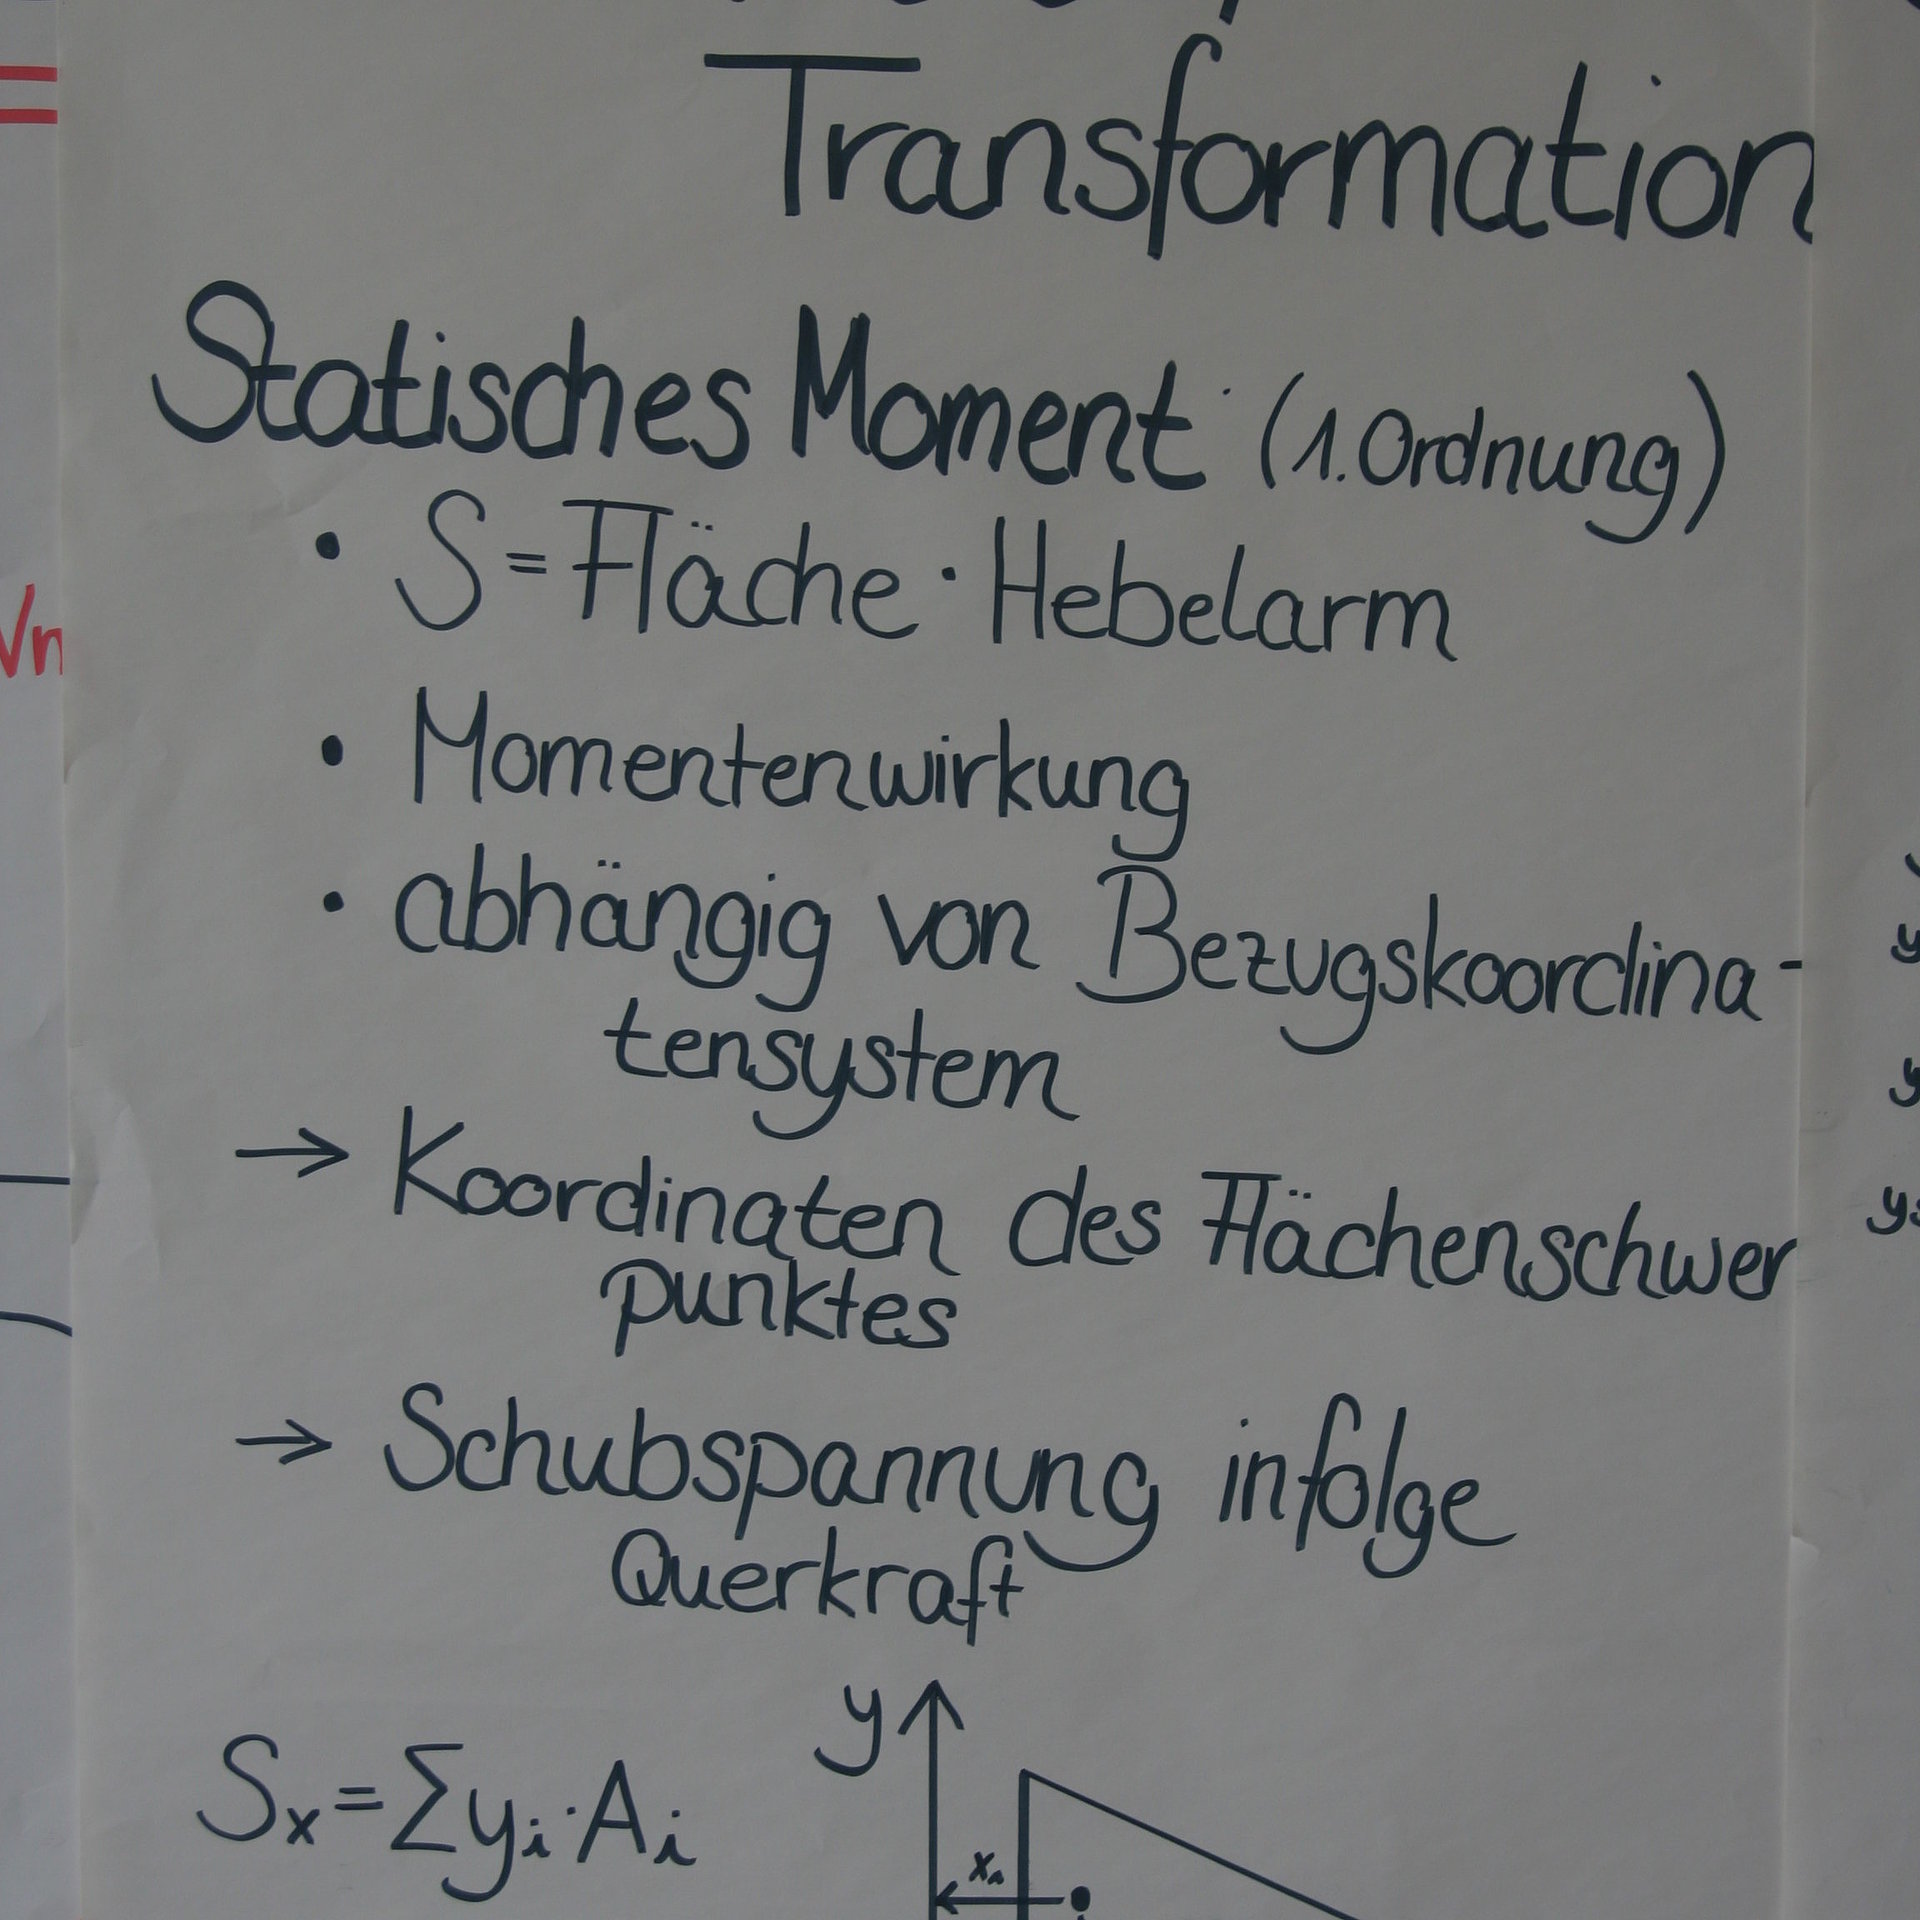 Transformation
Statisches Moment (1. Ordnung)
• S = Fläche · Hebelarm
• Momentenwirkung
• abhängig von Bezugskoordina-
tensystem
→ Koordinaten des Flächenschwer
punktes
→ Schubspannung infolge
Querkraft
y
Sx = Σ yi · Ai